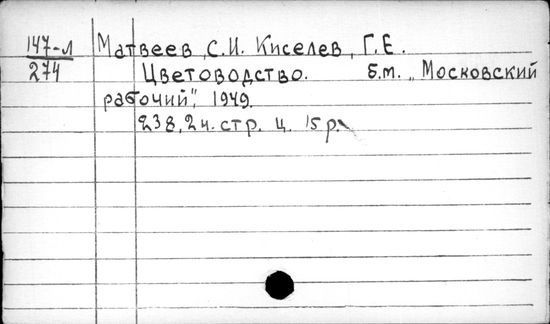 147-л Матвеев, С.И. Киселев, Г.Е.
274 Цветоводство. Б.м. „Московский
рабочий", 1949.
238, 2 н. стр. ц. 15 р.